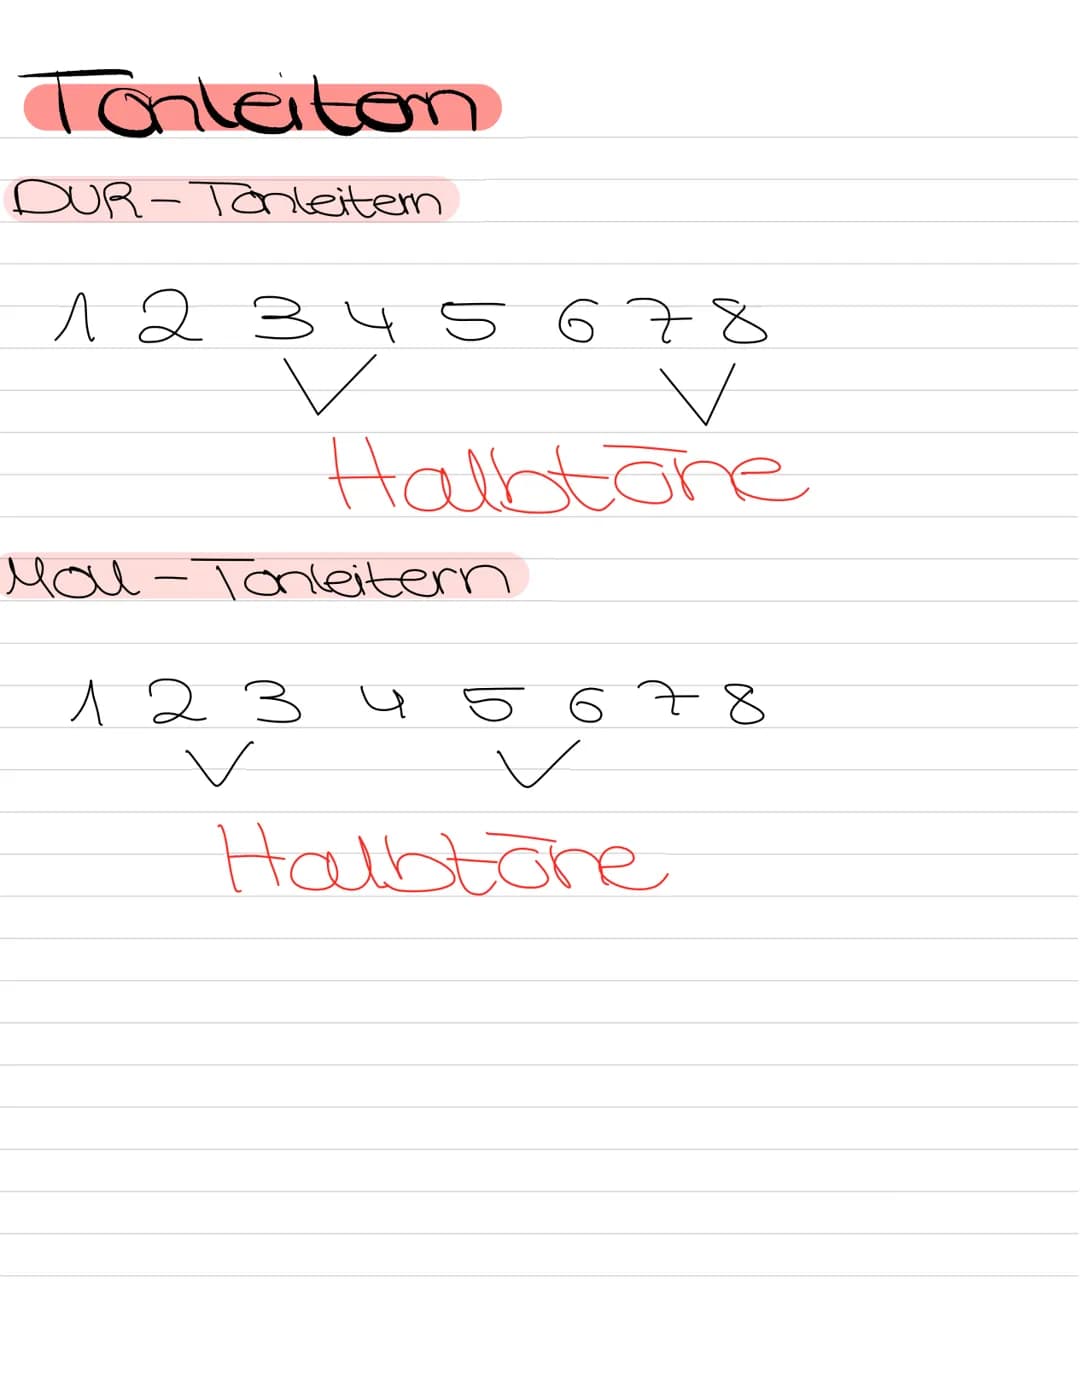 Tonleitern
DUR-Tonleitern
1 2 3 4 5 6 7 8
Halbtöne
Moll-Tonleitern
1 2 3 4 5 6 7 8
Halbtöne